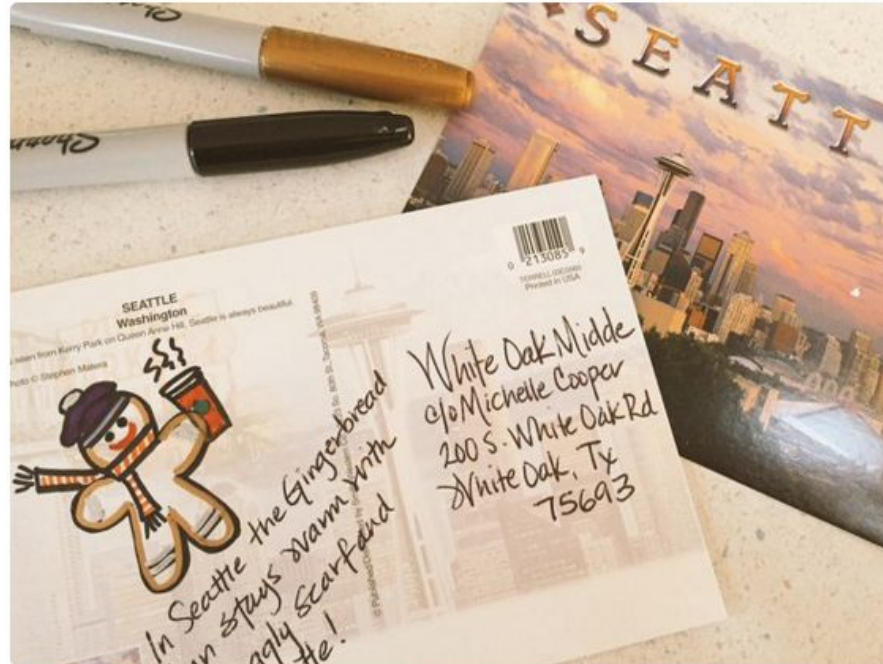 Sharpie
Sharpie
SEATT
0 213085 9
Printed in USA
SEATTLE
Washington
seen from Kerry Park on Queen Anne Hill, Seattle is always beautiful.
hoto © Stephen Matera
In Seattle the Gingerbread
n stays warm with
ugly scarf and
tte!
White Oak Midde
c/o Michelle Cooper
200 S. White Oak Rd
White Oak, Tx
75693